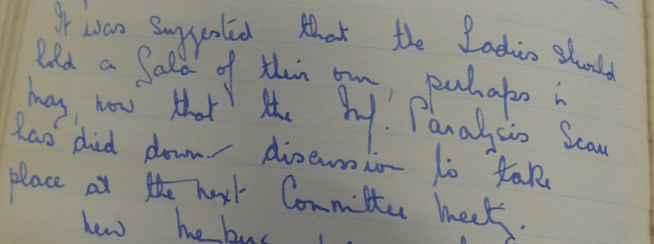 It was suggested that the Ladies should
hold a Gala of their own, perhaps in
May, now that the Inf. Paralysis Scare
has died down – discussion to take
place at the next Committee Meetg.
new members